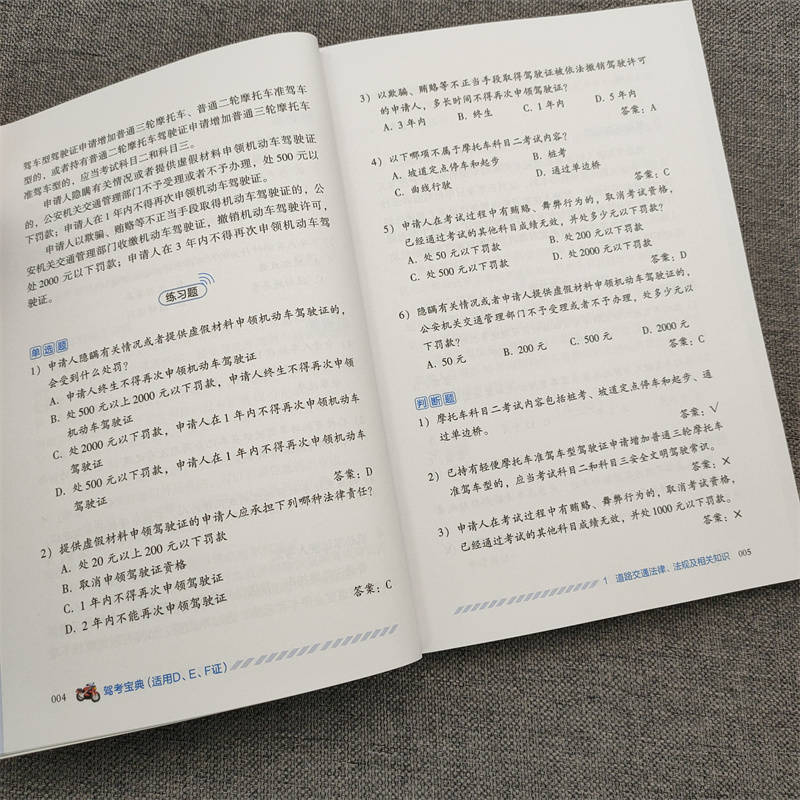 驾车型驾驶证申请增加普通三轮摩托车、普通二轮摩托车准驾车
型的，或者持有普通二轮摩托车驾驶证申请增加普通三轮摩托车
准驾车型的，应当考试科目二和科目三。
申请人隐瞒有关情况或者提供虚假材料申领机动车驾驶证
的，公安机关交通管理部门不予受理或者不予办理，处 500 元以
下罚款；申请人在 1 年内不得再次申领机动车驾驶证。
申请人以欺骗、贿赂等不正当手段取得机动车驾驶证的，公
安机关交通管理部门收缴机动车驾驶证，撤销机动车驾驶许可，
处 2000 元以下罚款；申请人在 3 年内不得再次申领机动车驾
驶证。
练习题
单选题
1）申请人隐瞒有关情况或者提供虚假材料申领机动车驾驶证的，
会受到什么处罚？
A. 申请人终生不得再次申领机动车驾驶证
B. 处 500 元以上 2000 元以下罚款，申请人终生不得再次申领
机动车驾驶证
C. 处 2000 元以下罚款，申请人在 1 年内不得再次申领机动车
驾驶证
D. 处 500 元以下罚款，申请人在 1 年内不得再次申领机动车
驾驶证
答案：D
2）提供虚假材料申领驾驶证的申请人应承担下列哪种法律责任？
A. 处 20 元以上 200 元以下罚款
B. 取消申领驾驶证资格
C. 1 年内不得再次申领驾驶证
D. 2 年内不能再次申领驾驶证
答案：C
004 驾考宝典（适用D、E、F证）
3）以欺骗、贿赂等不正当手段取得驾驶证被依法撤销驾驶许可
的申请人，多长时间不得再次申领驾驶证？
A. 3 年内 B. 终生 C. 1 年内 D. 5 年内
答案：A
4）以下哪项不属于摩托车科目二考试内容？
A. 坡道定点停车和起步 B. 桩考
C. 曲线行驶 D. 通过单边桥
答案：C
5）申请人在考试过程中有贿赂、舞弊行为的，取消考试资格，
已经通过考试的其他科目成绩无效，并处多少元以下罚款？
A. 处 50 元以下罚款 B. 处 200 元以下罚款
C. 处 500 元以下罚款 D. 处 2000 元以下罚款
答案：D
6）隐瞒有关情况或者申请人提供虚假材料申领机动车驾驶证的，
公安机关交通管理部门不予受理或者不予办理，处多少元以
下罚款？
A. 50 元 B. 200 元 C. 500 元 D. 2000 元
答案：C
判断题
1）摩托车科目二考试内容包括桩考、坡道定点停车和起步、通
过单边桥。
答案：√
2）已持有轻便摩托车准驾车型驾驶证申请增加普通三轮摩托车
准驾车型的，应当考试科目二和科目三安全文明驾驶常识。
答案：×
3）申请人在考试过程中有贿赂、舞弊行为的，取消考试资格，
已经通过考试的其他科目成绩无效，并处 1000 元以下罚款。
答案：×
1 道路交通法律、法规及相关知识 005